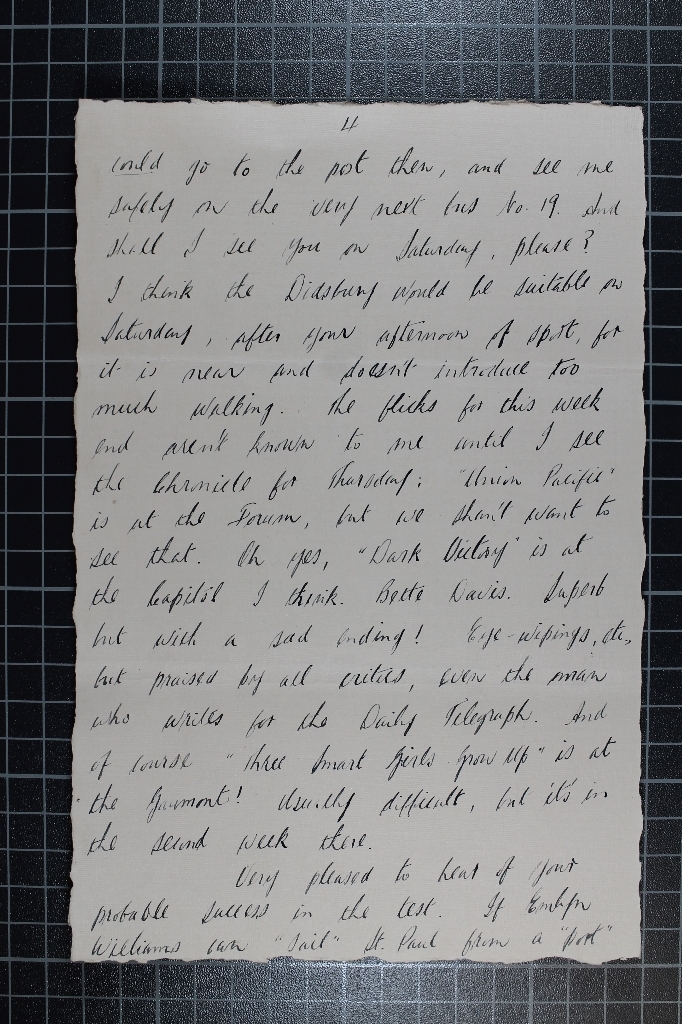 4
could go to the post then, and see me
safely on the very next bus No. 19. And
shall I see you on Saturday, please?
I think the Didsbury would be suitable on
Saturday, after your afternoon of sport, for
it is near and doesn't introduce too
much walking. The flicks for this week
end aren't known to me until I see
the Chronicle for Thursday; "Union Pacific"
is at the Forum, but we shan't want to
see that. Oh yes, "Dark Victory" is at
the Capitol I think. Bette Davis. Superb
but with a sad ending! Eye-wipings, etc,
but praised by all critics, even the man
who writes for the Daily Telegraph. And
of course "Three Smart Girls Grow Up" is at
the Gaumont! Usually difficult, but it's in
the second week there.
Very pleased to hear of your
probable success in the test. If Emlyn
Williams can "sail" St. Paul from a "port"